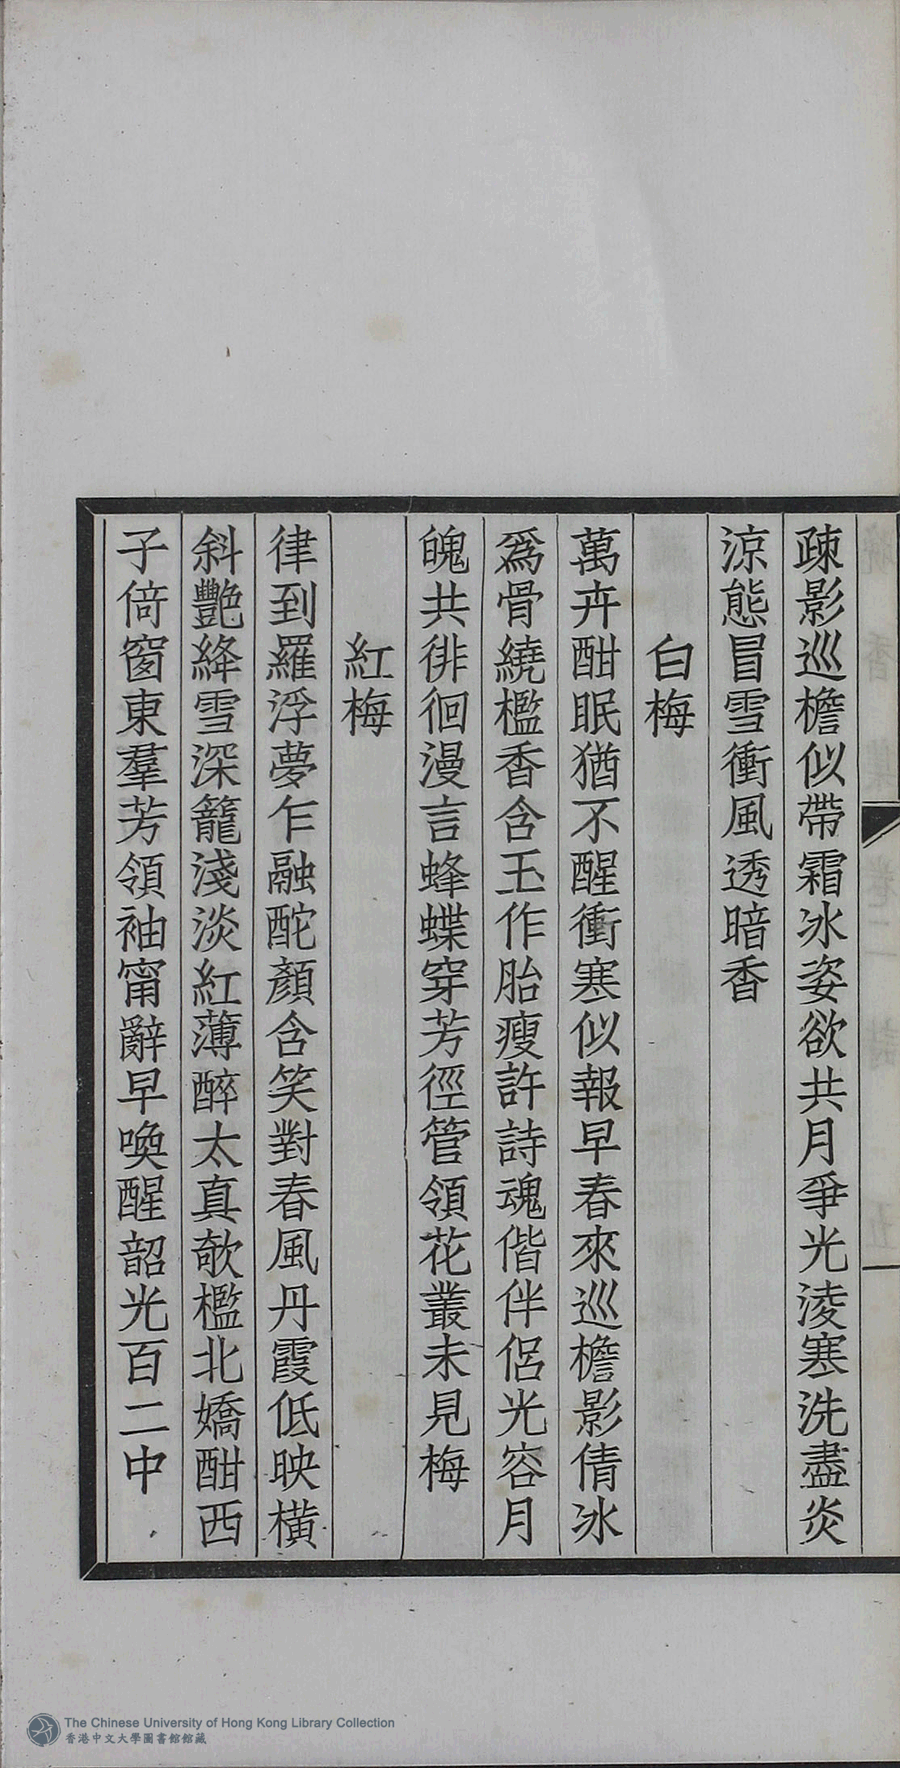 疎影巡檐似帶霜冰姿欲共月爭光淩寒洗盡炎
涼態冒雪衝風透暗香
白梅
萬卉酣眠猶不醒衝寒似報早春來巡檐影倩冰
爲骨繞檻香含玉作胎瘦許詩魂偕伴侶光容月
魄共徘徊漫言蜂蝶穿芳徑管領花叢未見梅
紅梅
律到羅浮夢乍融酡顏含笑對春風丹霞低映橫
斜艷絳雪深籠淺淡紅薄醉太真欹檻北嬌酣西
子倚窗東羣芳領袖甯辭早喚醒韶光百二中
The Chinese University of Hong Kong Library Collection
香港中文大學圖書館館藏